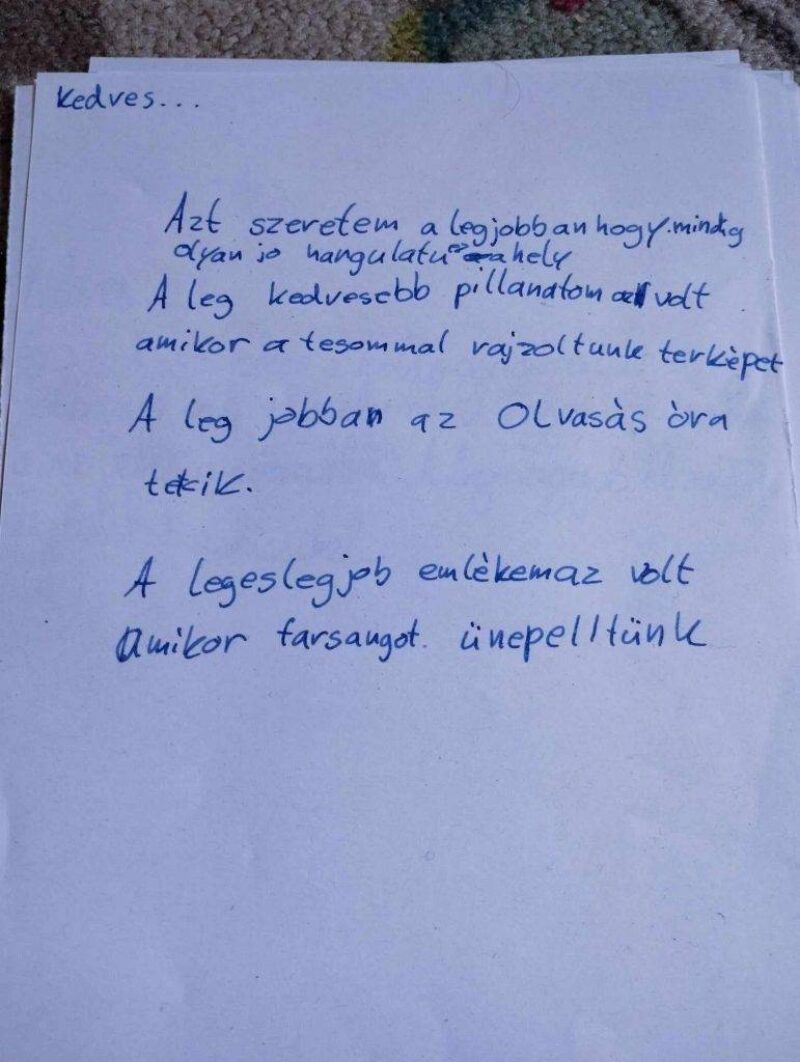 Kedves...
Azt szeretem a legjobban hogy mindig
olyan jo hangulatu ez a hely
A leg kedvesebb pillanatom az volt
amikor a tesommal rajzoltunk terkèpet
A leg jobban az Olvasàs òra
tetcik.
A legeslegjob emlèkem az volt
Amikor farsangot. ünepelltünk